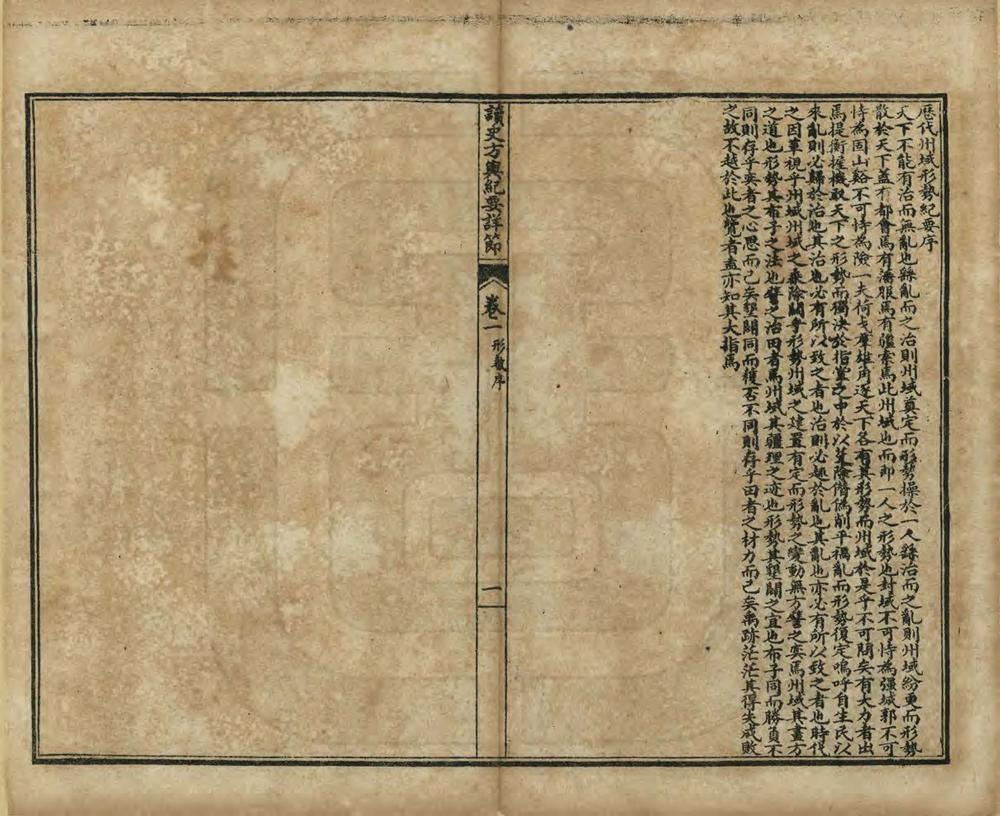 歷代州域形勢紀要序
天下不能有治而無亂也繇亂而之治則州域奠定而形勢操於一人繇治而之亂則州域紛更而形勢
散於天下蓋有都會焉有藩服焉有疆索焉此州域也而即一人之形勢也封域不可恃為强城郭不可
恃為固山谿不可恃為險一夫荷戈羣雄角逐天下各有其形勢而州域於是乎不可問矣有大力者出
焉提衡握機取天下之形勢而獨決於指掌之中於以芟除僭偽削平禍亂而形勢復定嗚呼自生民以
來亂則必歸於治也其治也必有所以致之者也治則必趨於亂也其亂也亦必有所以致之者也時代
之因革視乎州域州域之乘除關乎形勢州域之建置有定而形勢之變動無方譬之奕焉州域其畫方
之道也形勢其布子之法也譬之治田者焉州域其疆理之迹也形勢其墾闢之宜也布子同而勝負不
同則存乎奕者之心思而已矣墾闢同而穫否不同則存乎田者之材力而已矣禹跡茫茫其得失成敗
之故不越於此也覽者盍亦知其大指焉
讀史方輿紀要詳節
卷一
形勢序
一